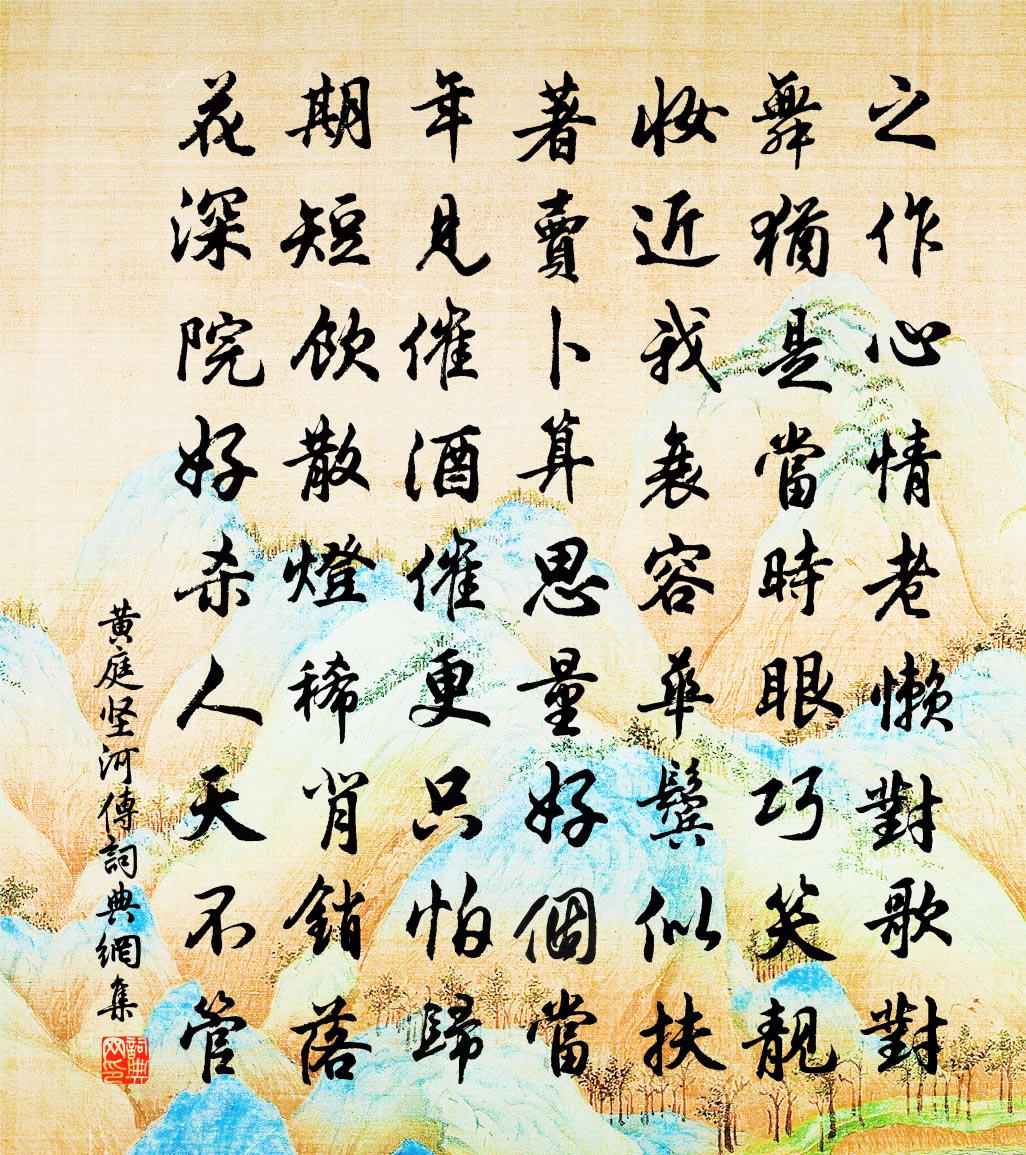 之作心情老懶對歌對
舞猶是當時眼巧笑靚
妝近我衰容華鬓似扶
著賣卜算思量好個當
年見催酒催更只怕歸
期短飲散燈稀肖銷落
花深院好杀人天不管
黄庭坚河傳詞典網集
詞典网印